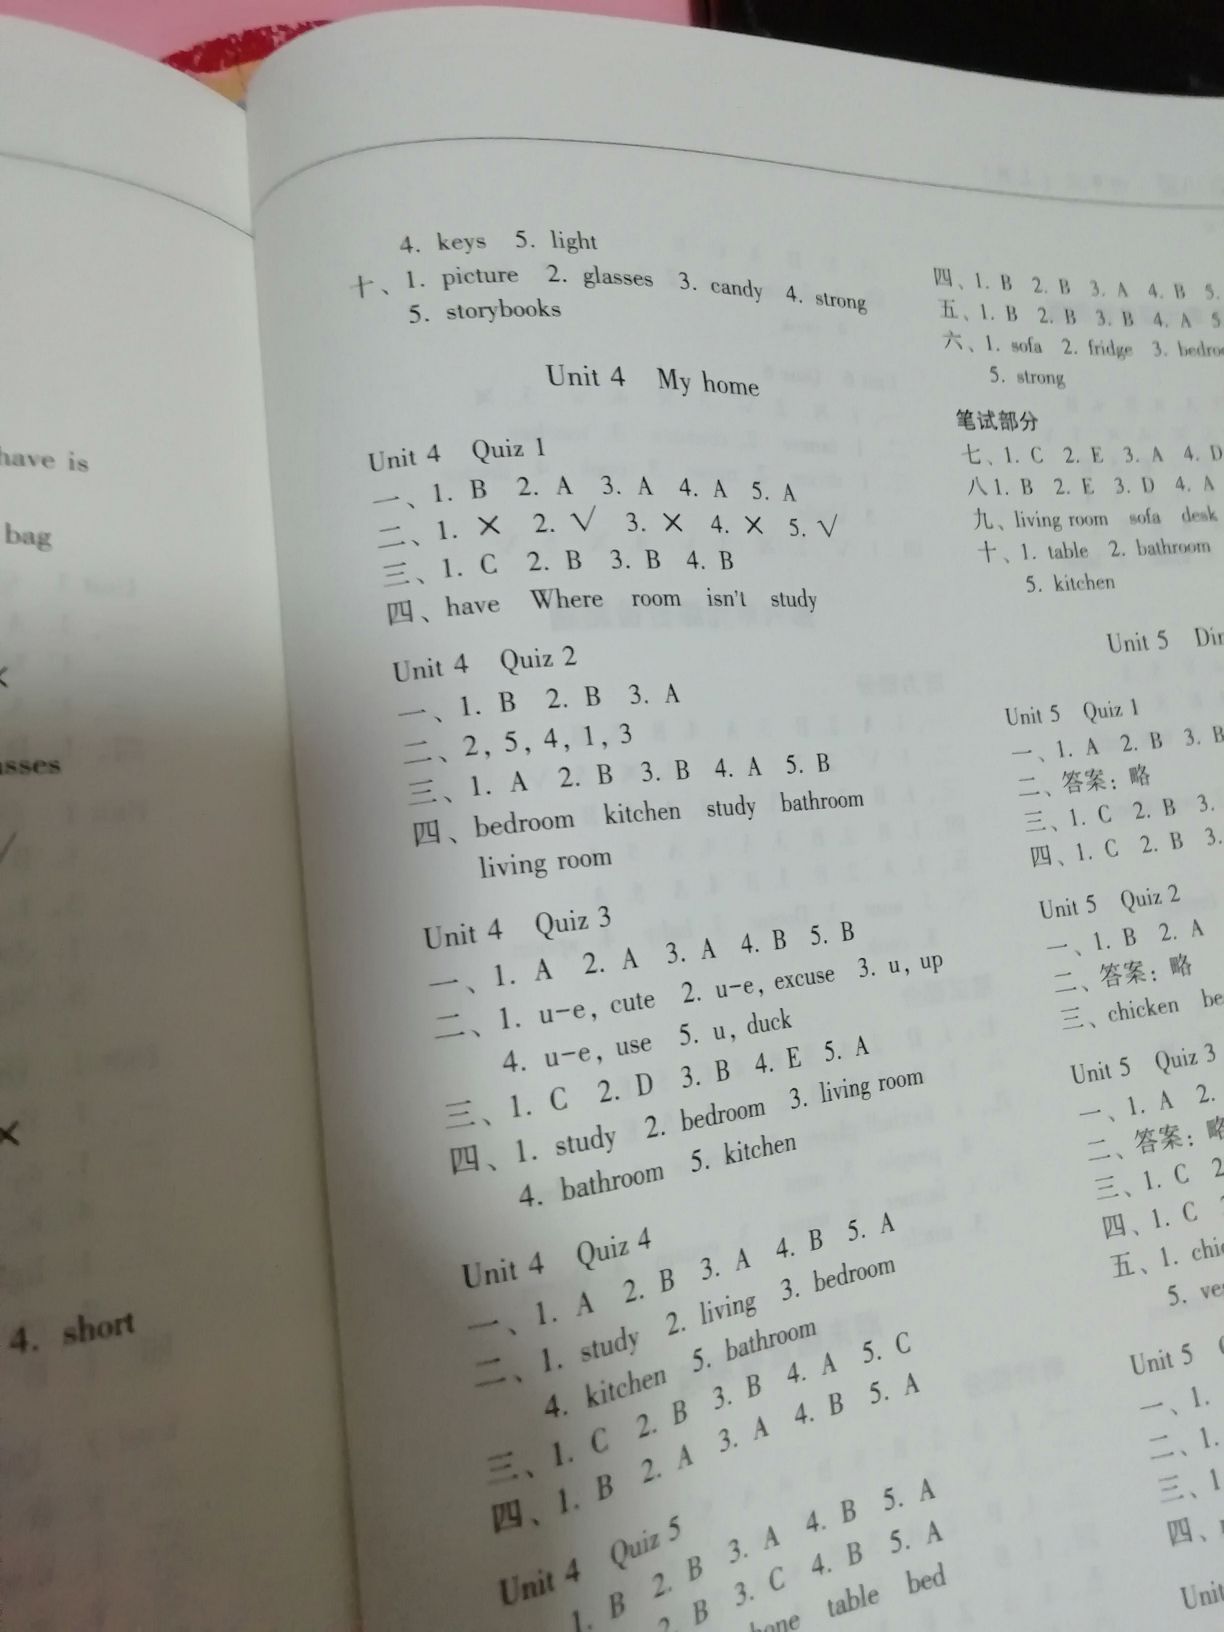 have is
bag
sses
4. short
4. keys 5. light
十、1. picture 2. glasses 3. candy 4. strong
5. storybooks
Unit 4 My home
Unit 4 Quiz 1
一、1. B 2. A 3. A 4. A 5. A
二、1. × 2. √ 3. × 4. × 5. √
三、1. C 2. B 3. B 4. B
四、have Where room isn't study
Unit 4 Quiz 2
一、1. B 2. B 3. A
二、2, 5, 4, 1, 3
三、1. A 2. B 3. B 4. A 5. B
四、bedroom kitchen study bathroom
living room
Unit 4 Quiz 3
一、1. A 2. A 3. A 4. B 5. B
二、1. u-e, cute 2. u-e, excuse 3. u, up
4. u-e, use 5. u, duck
三、1. C 2. D 3. B 4. E 5. A
四、1. study 2. bedroom 3. living room
4. bathroom 5. kitchen
Unit 4 Quiz 4
一、1. A 2. B 3. A 4. B 5. A
二、1. study 2. living 3. bedroom
4. kitchen 5. bathroom
三、1. C 2. B 3. B 4. A 5. C
四、1. B 2. A 3. A 4. B 5. A
Unit 4 Quiz 5
1. B 2. B 3. A 4. B 5. A
2. B 3. C 4. B 5. A
table bed
四、1. B 2. B 3. A 4. B 5.
五、1. B 2. B 3. B 4. A 5
六、1. sofa 2. fridge 3. bedroo
5. strong
笔试部分
七、1. C 2. E 3. A 4. D
八1. B 2. E 3. D 4. A
九、living room sofa desk
十、1. table 2. bathroom
5. kitchen
Unit 5 Din
Unit 5 Quiz 1
一、1. A 2. B 3. B
二、答案：略
三、1. C 2. B 3.
四、1. C 2. B 3.
Unit 5 Quiz 2
一、1. B 2. A
二、答案：略
三、chicken be
Unit 5 Quiz 3
一、1. A 2.
二、答案：略
三、1. C 2
四、1. C
五、1. chic
5. ve
Unit 5
一、1.
二、1.
三、1
四、
Unit